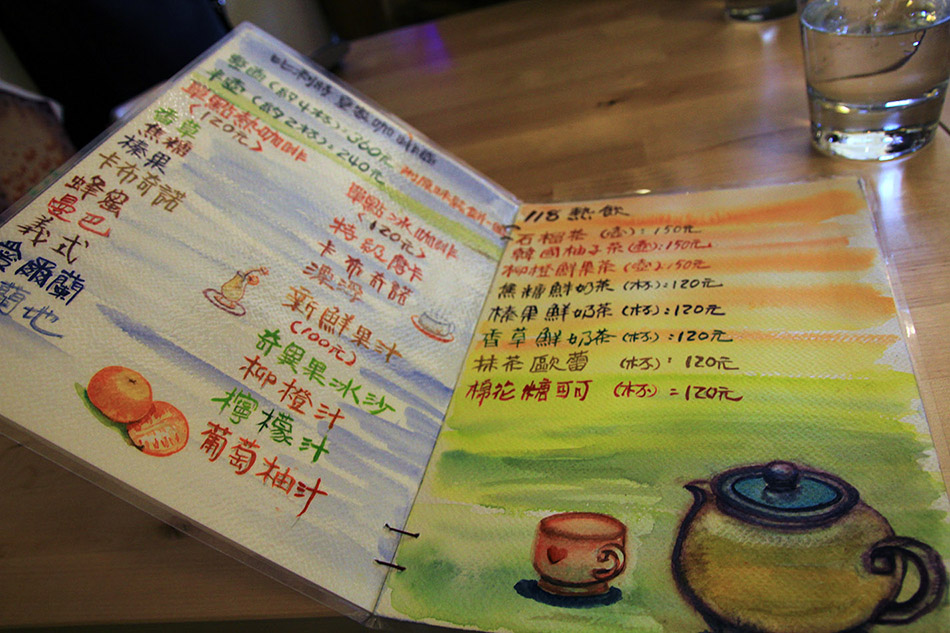 比利時皇家咖啡壺
壺(約4杯):360元
半壺(約2杯):240元
單點熱咖啡
(120元)
香草
焦糖
榛果
卡布奇諾
蜂蜜
曼巴
義式
愛爾蘭
蘭地
單點冰咖啡
(120元)
特級摩卡
卡布奇諾
漂浮
新鮮果汁
(100元)
奇異果冰沙
柳橙汁
檸檬汁
葡萄柚汁
118 熱飲
石榴茶(壺):150元
韓國柚子茶(壺):150元
柳橙鮮果茶(壺):150元
焦糖鮮奶茶(杯):120元
榛果鮮奶茶(杯):120元
香草鮮奶茶(杯):120元
抹茶歐蕾 (杯): 120元
棉花糖可可 (杯) :120元